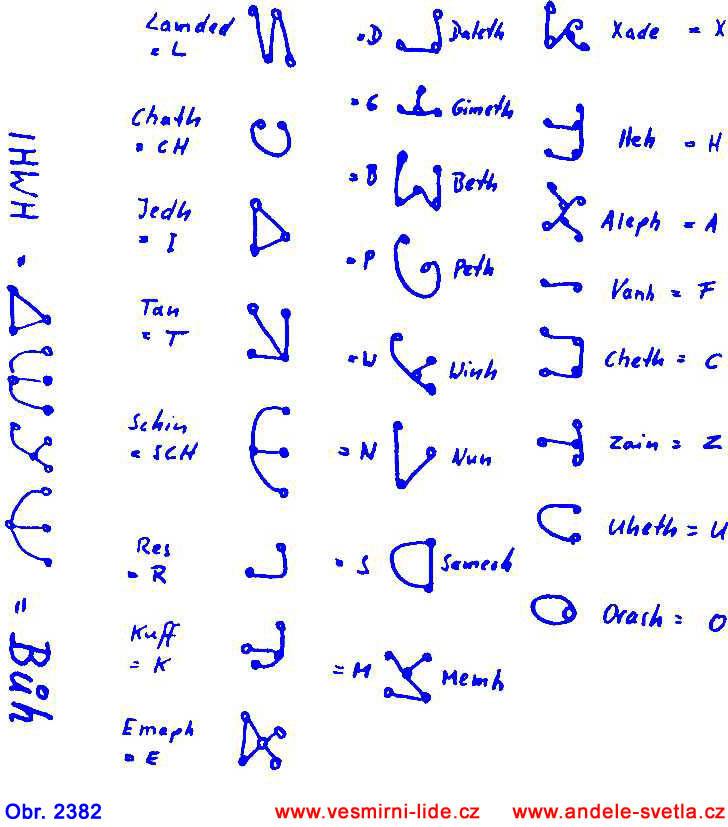 Lamded
= L
Chath
= CH
Jedh
= I
Tau
= T
Schin
= SCH
Res
= R
Kuff
= K
Emeph
= E
= D Daleth
= G Gimeth
= B Beth
= P Peth
= W Winh
= N Nun
= S Samech
= M Memh
Xade = X
Heh = H
Aleph = A
Vanh = F
Cheth = C
Zain = Z
Uheth = U
Orash = O
IHWH = = Bůh
Obr. 2382
www.vesmirni-lide.cz www.andele-svetla.cz